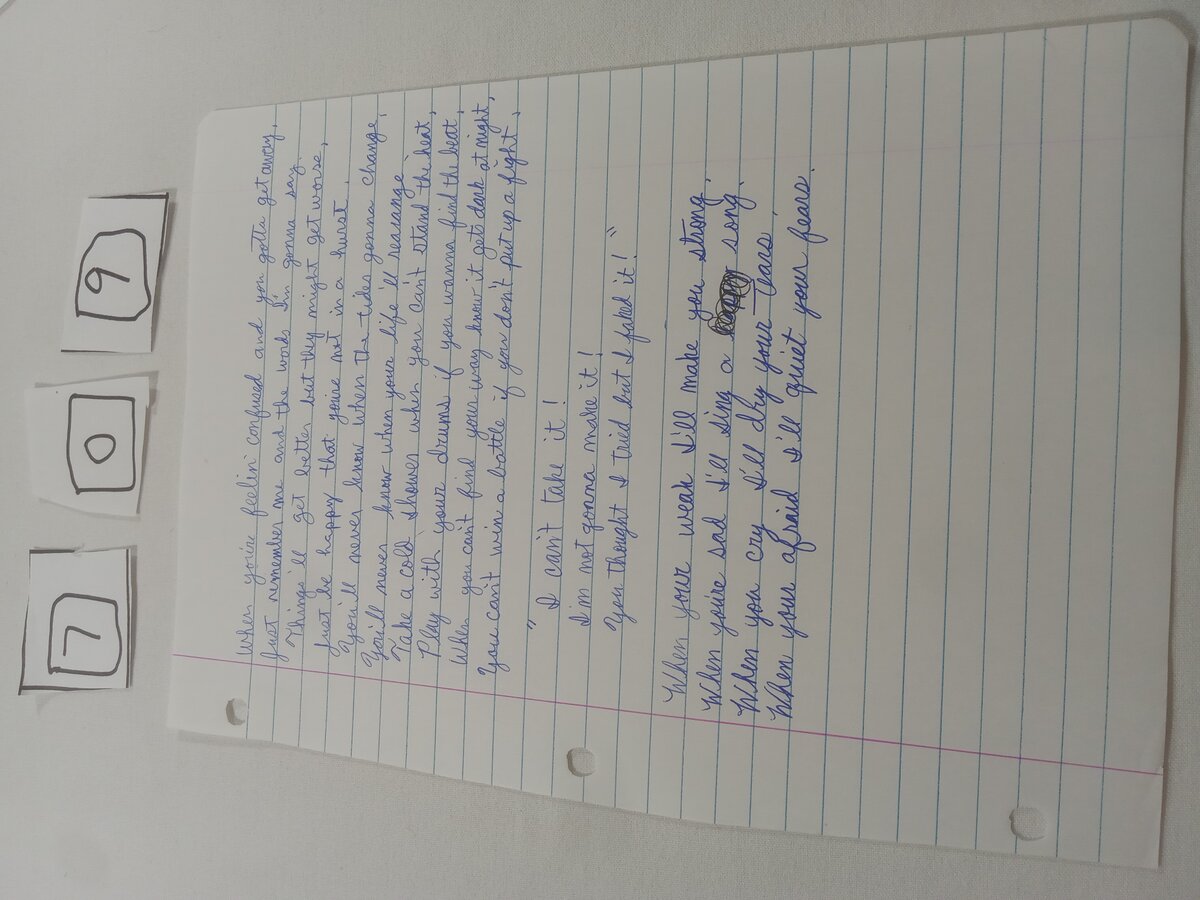 7 0 9
When you're feelin' confused and you gotta get away,
Just remember me and the words I'm gonna say.
Things'll get better but they might get worse,
Just be happy that you're not in a hurst.
You'll never know when the tides gonna change,
You'll never know when your life'll rearange.
Take a cold shower when you can't stand the heat,
Play with your drums if you wanna find the beat,
When you can't find your way know it gets dark at night,
You can't win a battle if you don't put up a fight.
"I can't take it!
I'm not gonna make it!
You thought I tried but I faked it!"
When your weak I'll make you strong,
When you're sad I'll sing a song.
When you cry I'll dry your tears
When your afraid I'll quiet your fears.